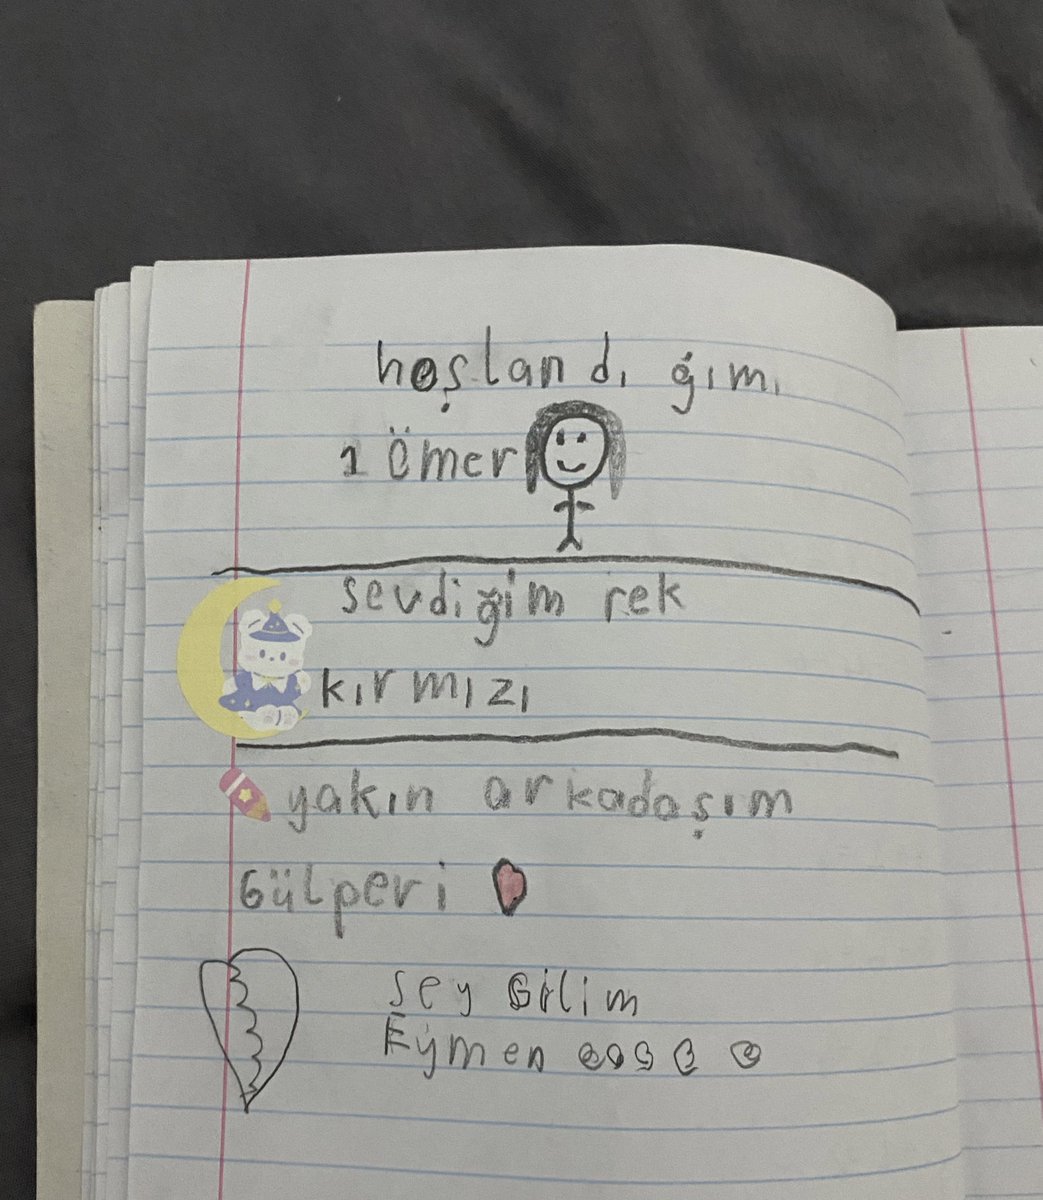 hoşlandı ğımı
1 Ömer
sevdiğim rek
kırmızı
yakın arkadaşım
Gülperi
Sey Gilim
Eymen